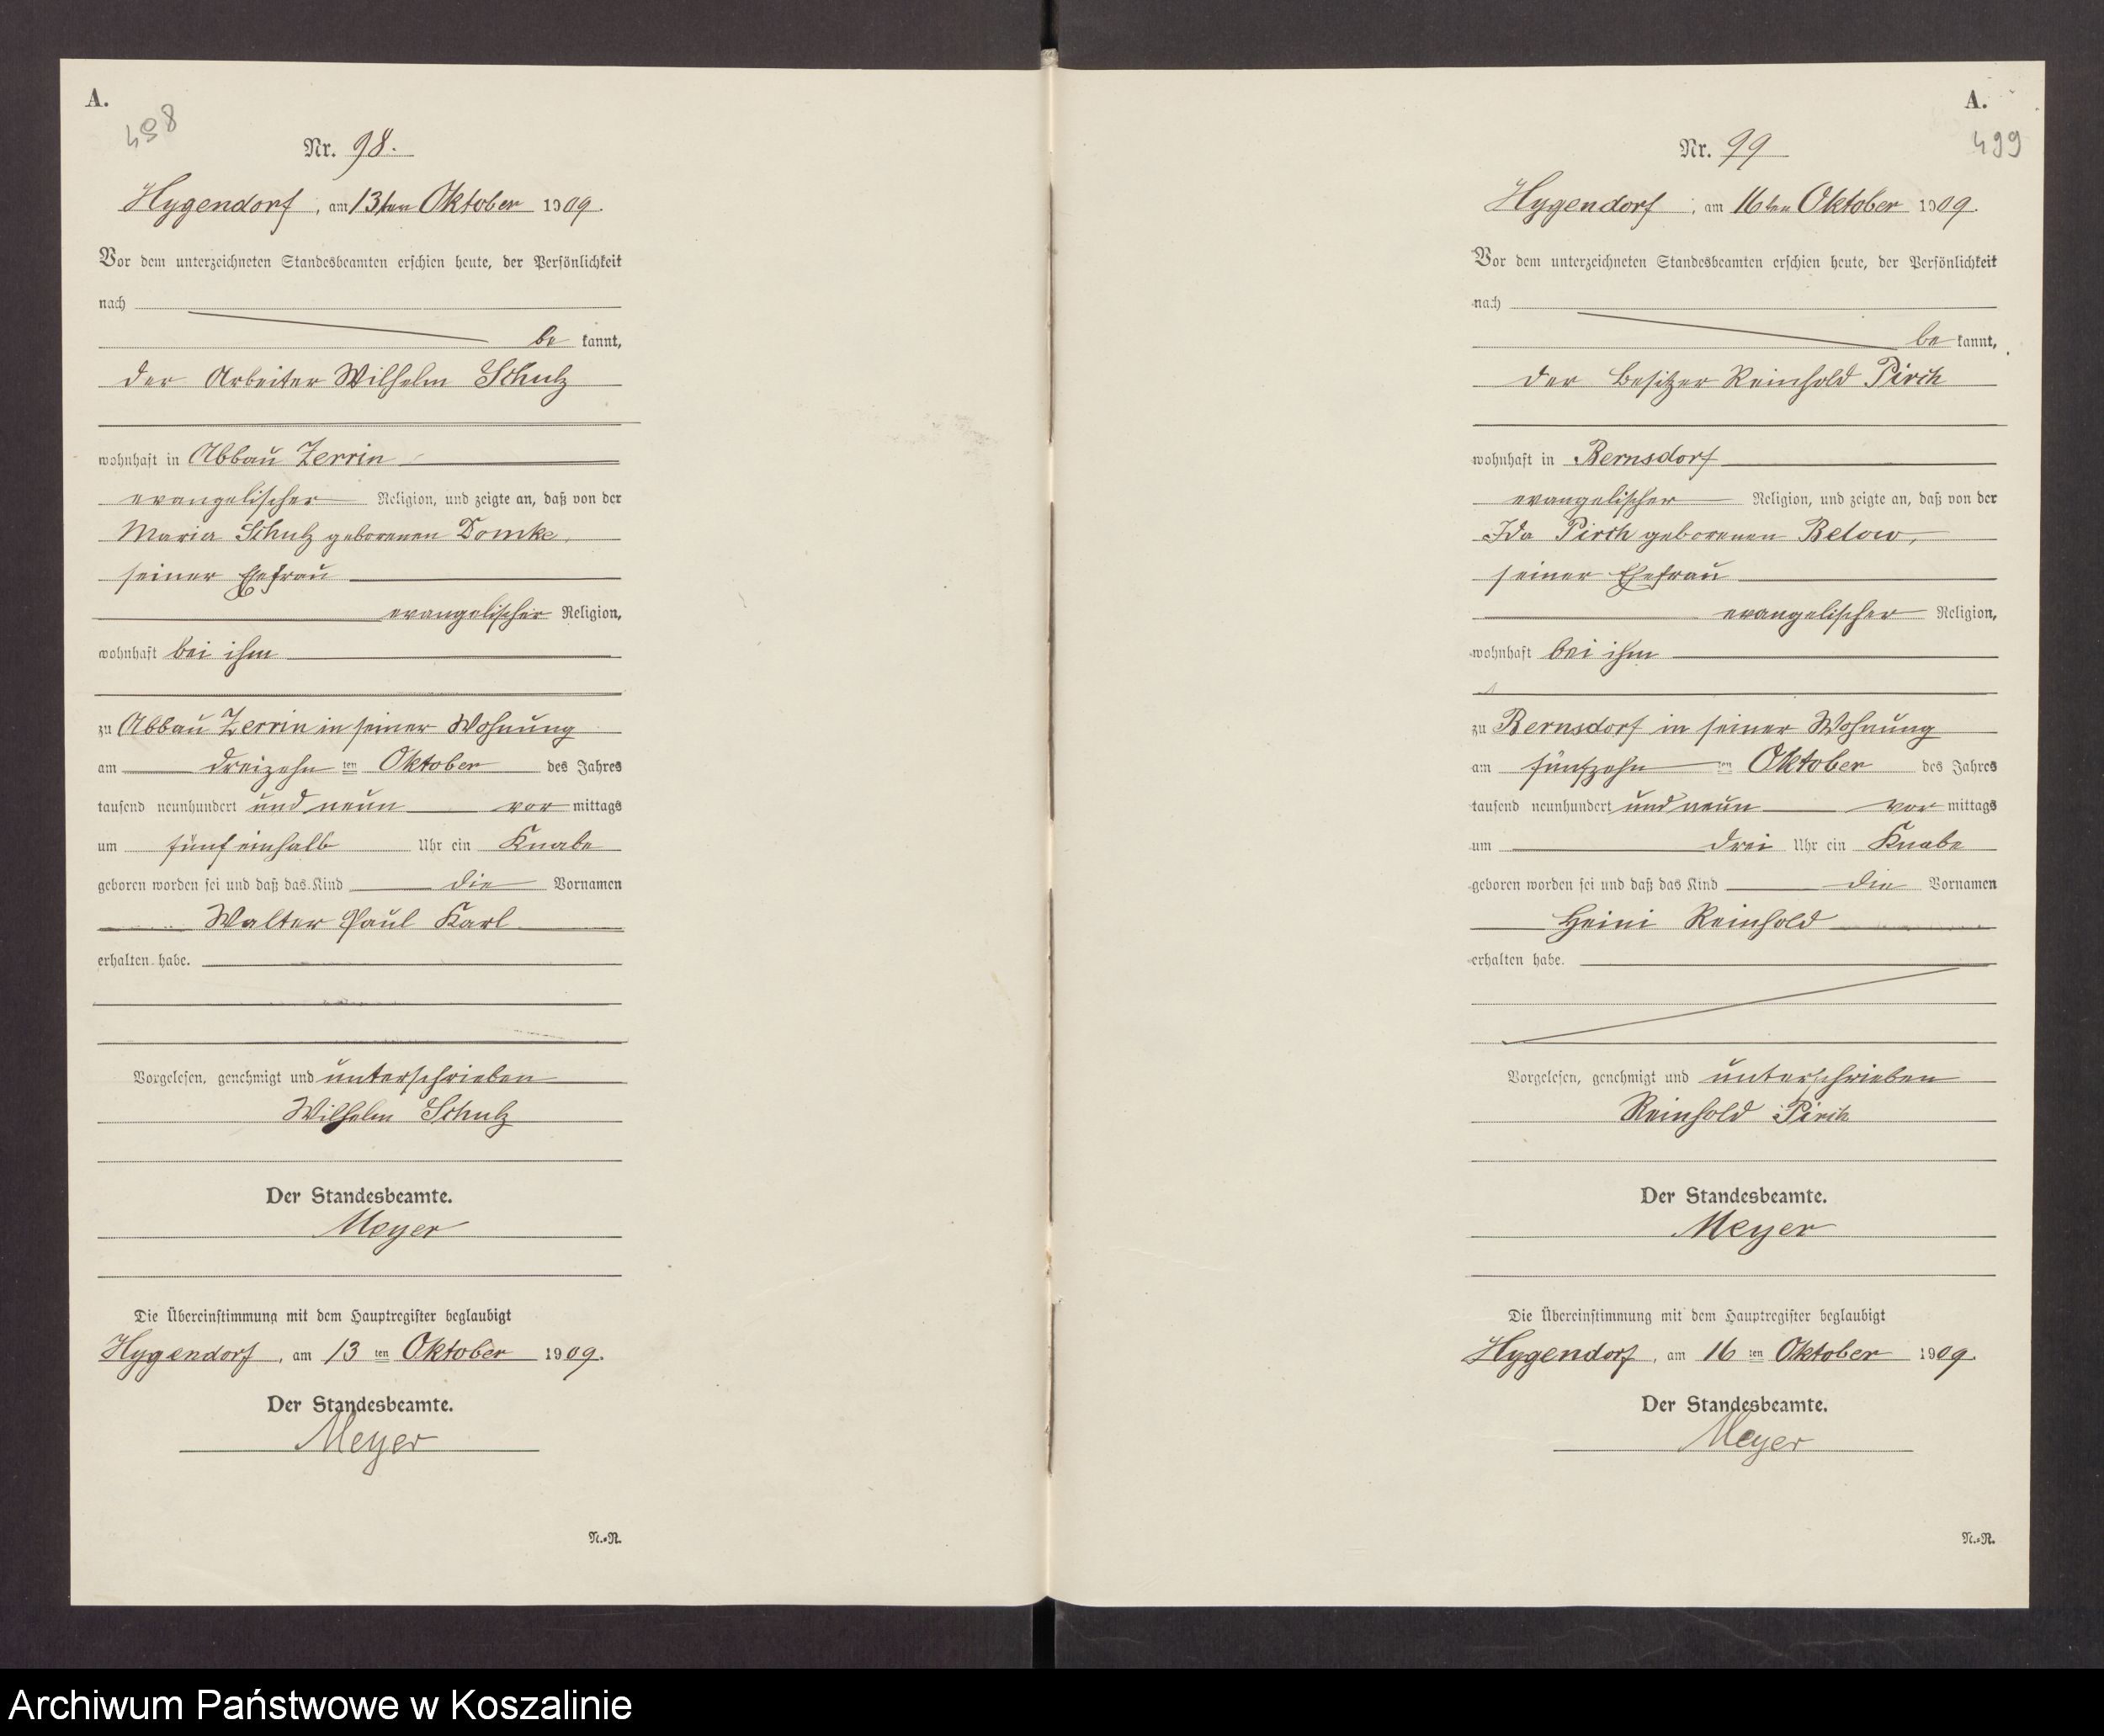 A.
498
Nr. 98.
Hygendorf, am 13ten Oktober 1909.
Vor dem unterzeichneten Standesbeamten erschien heute, der Persönlichkeit
nach
be kannt,
der Arbeiter Wilhelm Schulz
wohnhaft in Abbau Zerrin
evangelischer Religion, und zeigte an, daß von der
Maria Schulz geborenen Domke,
seiner Ehefrau
evangelischer Religion,
wohnhaft bei ihm
zu Abbau Zerrin in seiner Wohnung
am dreizehn ten Oktober des Jahres
tausend neunhundert und neun vor mittags
um fünf einhalb Uhr ein Knabe
geboren worden sei und daß das Kind die Vornamen
Walter Paul Karl
erhalten habe.
Vorgelesen, genehmigt und unterschrieben
Wilhelm Schulz
Der Standesbeamte.
Meyer
Die Übereinstimmung mit dem Hauptregister beglaubigt
Hygendorf, am 13 ten Oktober 1909.
Der Standesbeamte.
Meyer
N.=R.
A.
499
Nr. 99
Hygendorf, am 16ten Oktober 1909.
Vor dem unterzeichneten Standesbeamten erschien heute, der Persönlichkeit
nach
be kannt,
der Besitzer Reinhold Pirch
wohnhaft in Bernsdorf
evangelischer Religion, und zeigte an, daß von der
Ida Pirch geborenen Below,
seiner Ehefrau
evangelischer Religion,
wohnhaft bei ihm
zu Bernsdorf in seiner Wohnung
am fünfzehn ten Oktober des Jahres
tausend neunhundert und neun vor mittags
um drei Uhr ein Knabe
geboren worden sei und daß das Kind die Vornamen
Heini Reinhold
erhalten habe.
Vorgelesen, genehmigt und unterschrieben
Reinhold Pirch
Der Standesbeamte.
Meyer
Die Übereinstimmung mit dem Hauptregister beglaubigt
Hygendorf, am 16 ten Oktober 1909.
Der Standesbeamte.
Meyer
N.=R.
Archiwum Państwowe w Koszalinie